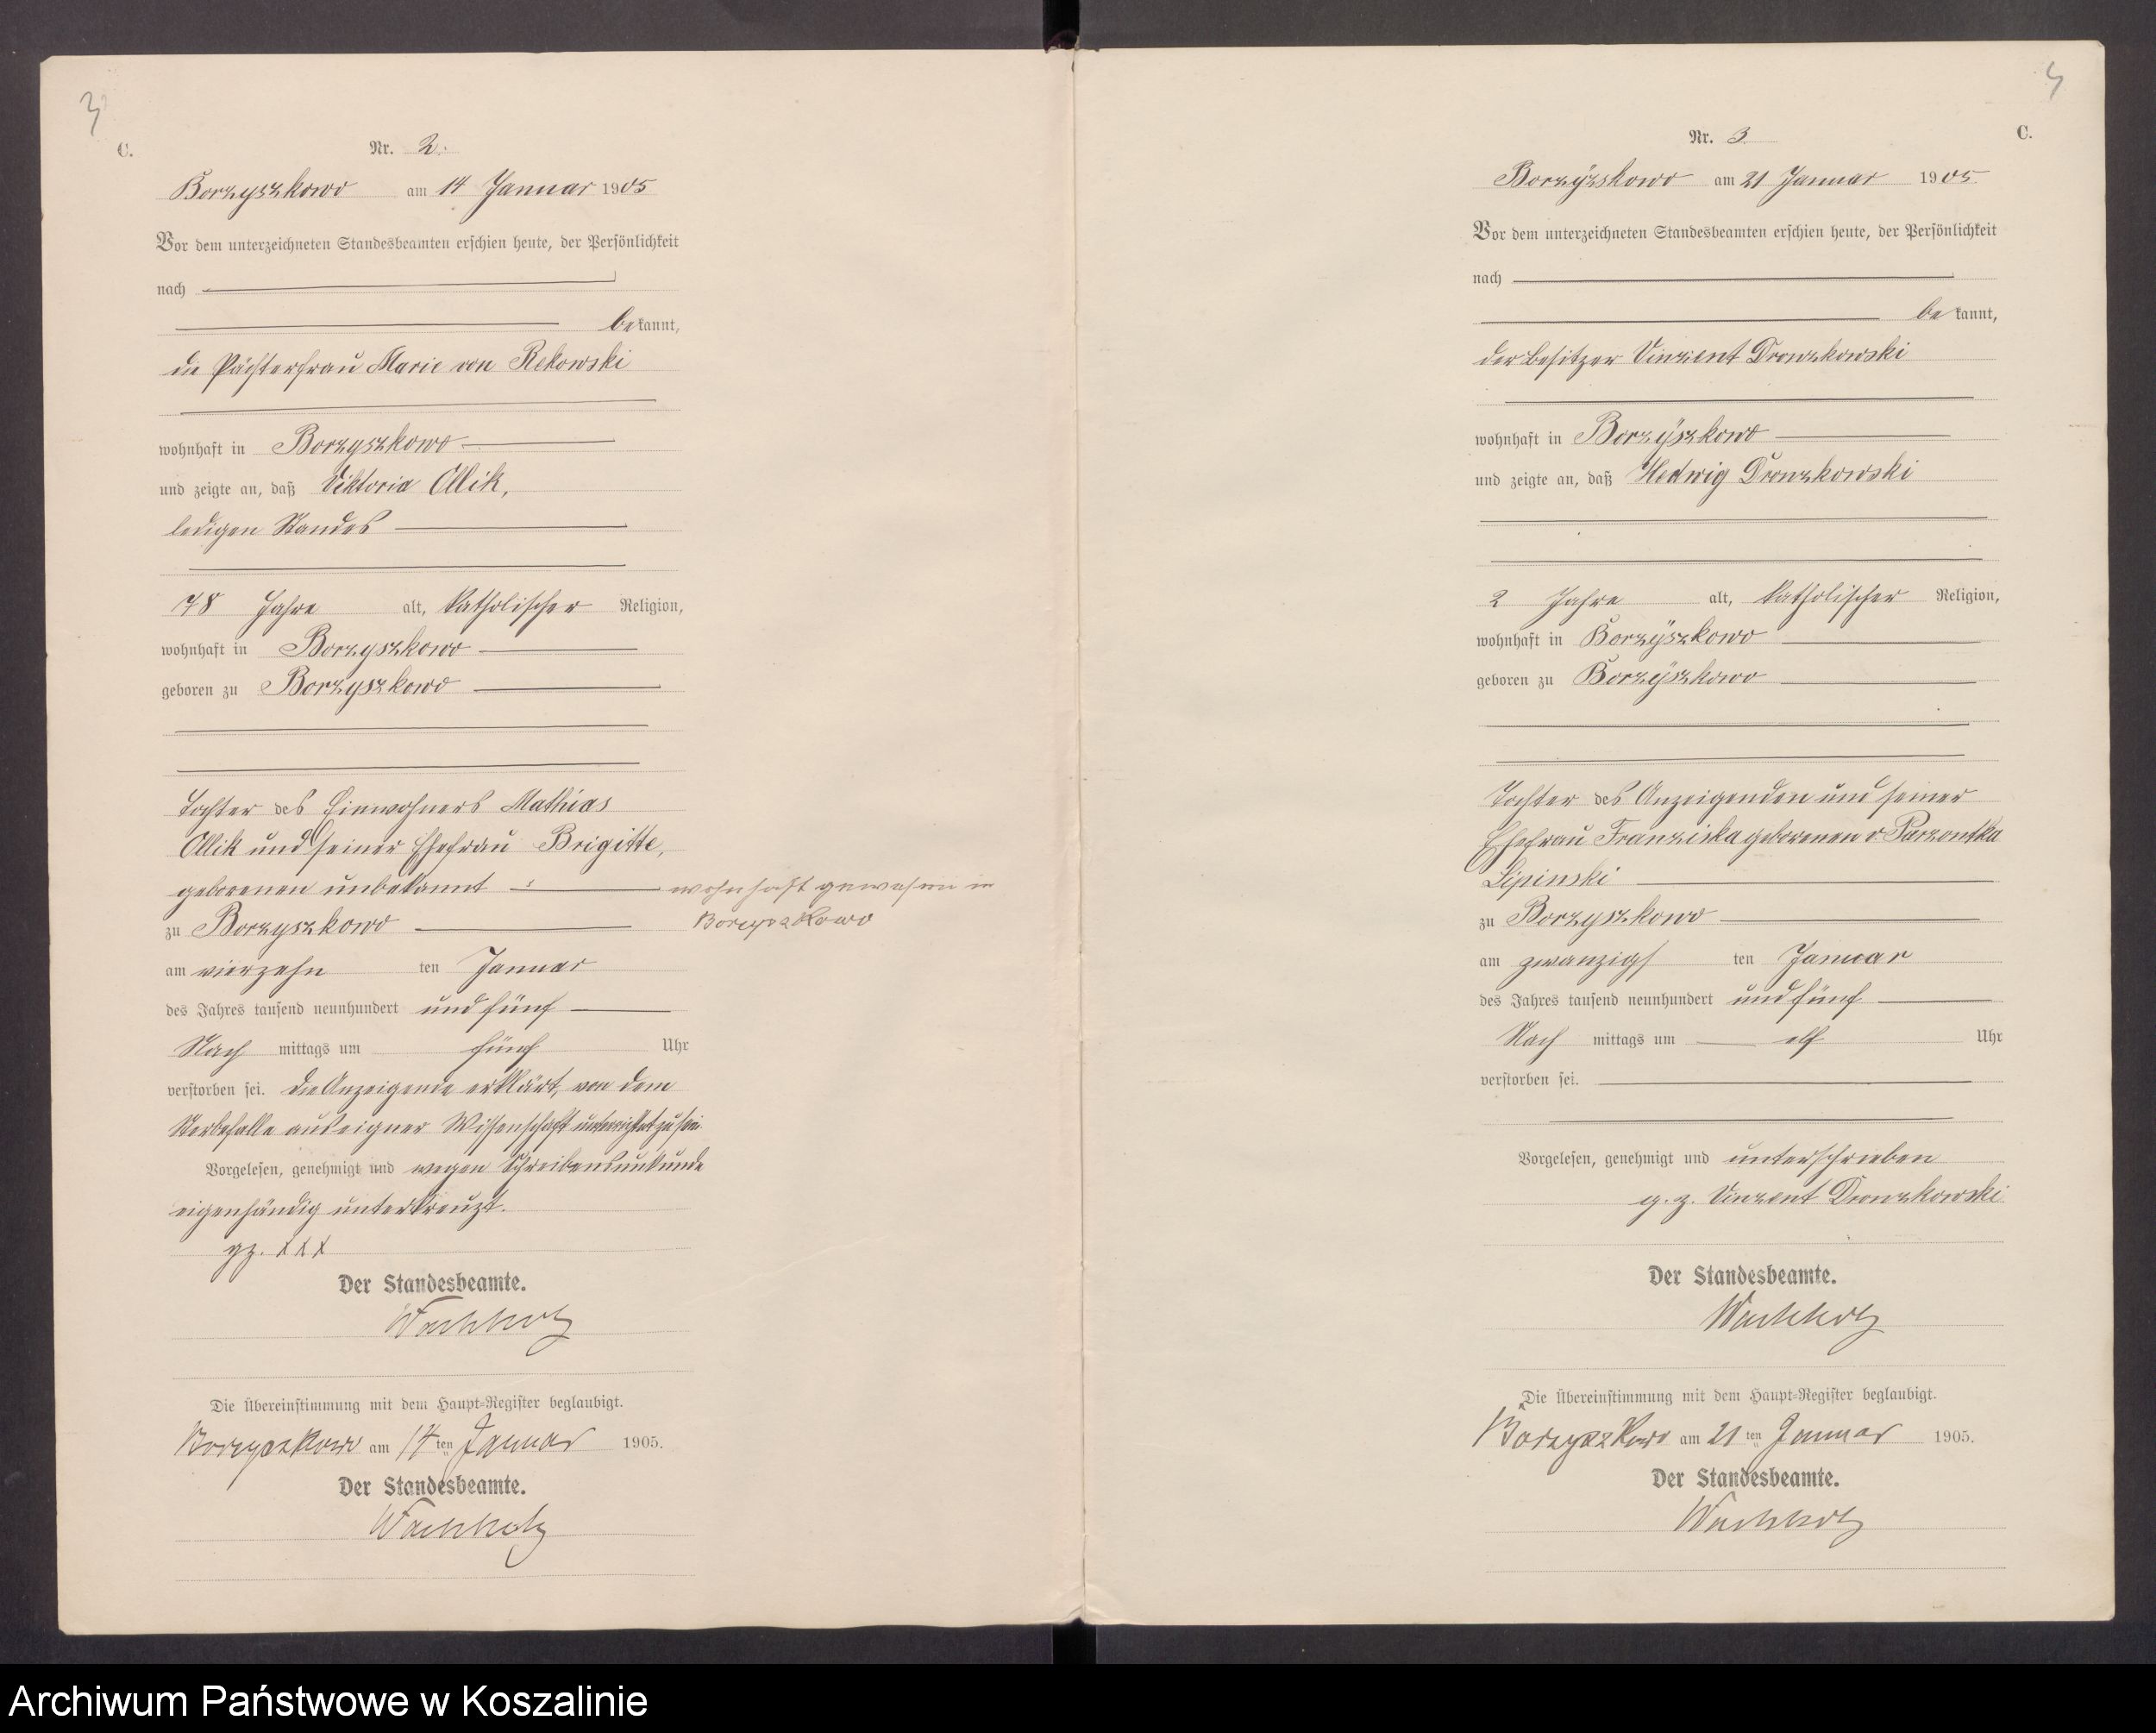 3
C.
Nr. 2.
Borzyszkowo am 14 Januar 1905
Vor dem unterzeichneten Standesbeamten erschien heute, der Persönlichkeit
nach
bekannt,
die Pächterfrau Marie von Rekowski
wohnhaft in Borzyszkowo
und zeigte an, daß Viktoria Ollik,
ledigen Standes
78 Jahre alt, katholischer Religion,
wohnhaft in Borzyszkowo
geboren zu Borzyszkowo
Tochter des Einwohners Mathias
Ollik und seiner Ehefrau Brigitte,
geborenen unbekannt wohnhaft gewesen in
Borzyszkowo
zu Borzyszkowo
am vierzehn ten Januar
des Jahres tausend neunhundert und fünf
Nach mittags um fünf Uhr
verstorben sei. Die Anzeigende erklärt, von dem
Sterbefalle aus eigner Wissenschaft unterrichtet zu sein.
Vorgelesen, genehmigt und wegen Schreibensunkunde
eigenhändig unterkreuzt.
gz. XXX
Der Standesbeamte.
Wachholz
Die Übereinstimmung mit dem Haupt-Register beglaubigt.
Borzyszkowo am 14ten Januar 1905.
Der Standesbeamte.
Wachholz
4
C.
Nr. 3
Borzÿskowo am 21 Januar 1905
Vor dem unterzeichneten Standesbeamten erschien heute, der Persönlichkeit
nach
bekannt,
der Besitzer Vinzent Dronzkowski
wohnhaft in Borzÿszkowo
und zeigte an, daß Hedwig Dronzkowski
2 Jahre alt, katholischer Religion,
wohnhaft in Borzÿszkowo
geboren zu Borzÿszkowo
Tochter des Anzeigenden und seiner
Ehefrau Franziska geborenen v Parzontka
Lipinski
zu Borzyszkowo
am zwanzigs ten Januar
des Jahres tausend neunhundert und fünf
Nach mittags um elf Uhr
verstorben sei.
Vorgelesen, genehmigt und unterschrieben
g. z. Vinzent Dronzkowski
Der Standesbeamte.
Wachholz
Die Übereinstimmung mit dem Haupt-Register beglaubigt.
Borzyszkowo am 21ten Januar 1905.
Der Standesbeamte.
Wachholz
Archiwum Państwowe w Koszalinie